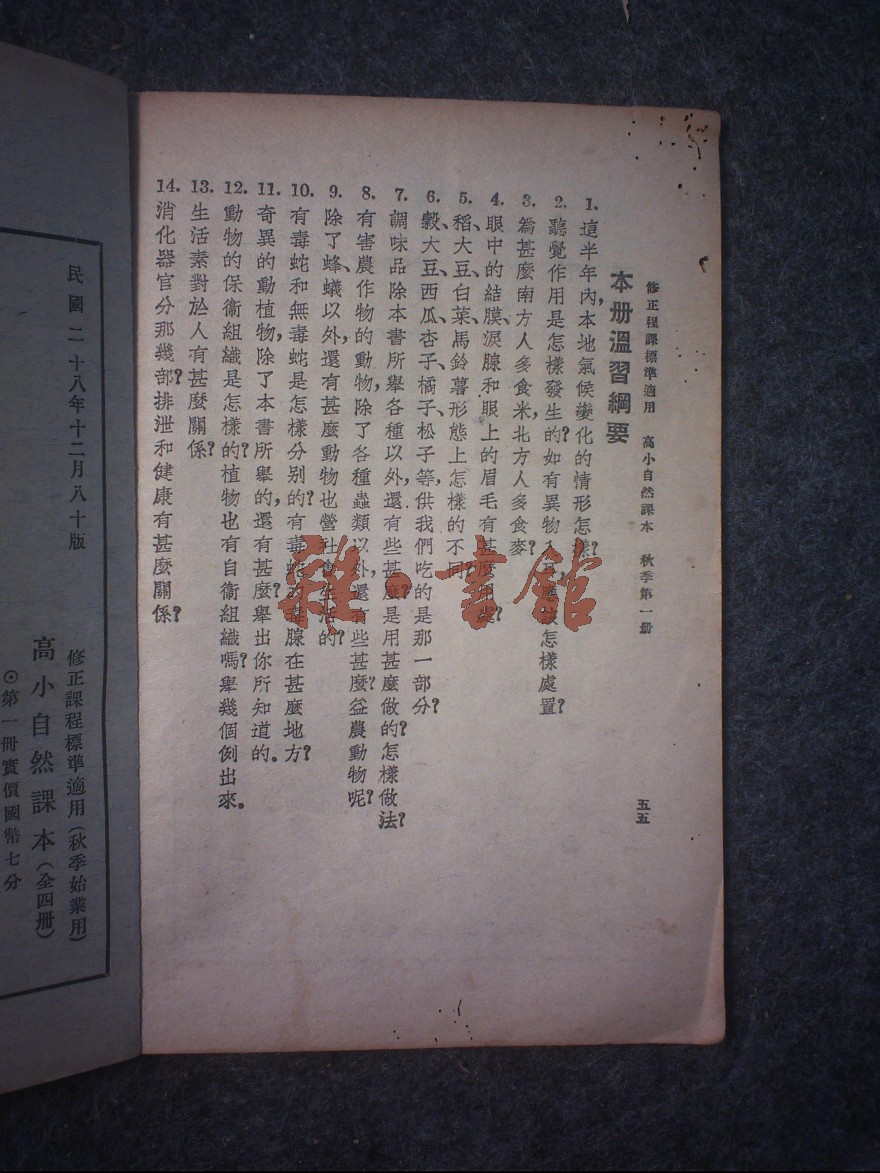 修正程課標準適用 高小自然課本 秋季第一册
五五
本册溫習綱要
1. 這半年內，本地氣候變化的情形怎樣？
2. 聽覺作用是怎樣發生的？如有異物入耳應該怎樣處置？
3. 爲甚麼南方人多食米，北方人多食麥？
4. 眼中的結膜、淚腺和眼上的眉毛有甚麼用處？
5. 稻、大豆、白菜、馬鈴薯形態上怎樣的不同？
6. 穀、大豆、西瓜、杏子、橘子、松子等，供我們吃的是那一部分？
7. 調味品除本書所舉各種以外，還有些甚麼？是用甚麼做的？怎樣做法？
8. 有害農作物的動物，除了各種蟲類以外，還有些甚麼？益農動物呢？
9. 除了蜂、蟻以外，還有甚麼動物也營社會生活的？
10. 有毒蛇和無毒蛇是怎樣分別的？有毒蛇的毒腺在甚麼地方？
11. 奇異的動植物，除了本書所舉的，還有甚麼？舉出你所知道的。
12. 動物的保衞組織是怎樣的？植物也有自衞組織嗎？舉幾個例出來。
13. 生活素對於人有甚麼關係？
14. 消化器官分那幾部？排泄和健康有甚麼關係？
雜·書館
民國二十八年十二月八十版
修正課程標準適用（秋季始業用）
高小自然課本（全四册）
⊙第一冊實價國幣七分